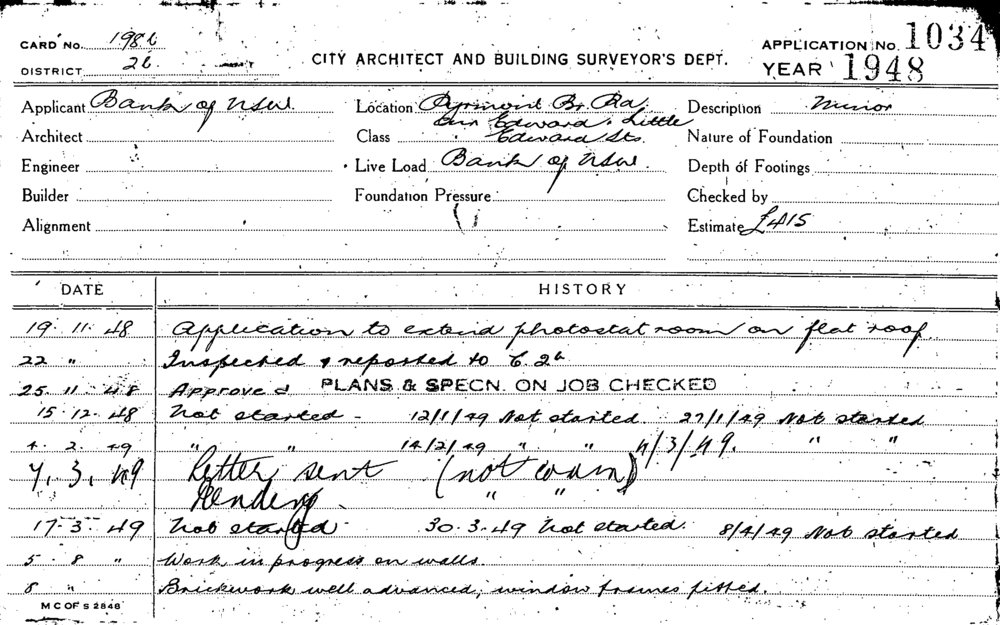 CARD No. 1986
DISTRICT 26
CITY ARCHITECT AND BUILDING SURVEYOR'S DEPT.
APPLICATION No. 1034
YEAR 1948
Applicant Bank of NSW. Location Pyrmont Br. Rd. Description Minor
Cnr Edward & Little
Architect Class Edward Sts. Nature of Foundation
Engineer Live Load Bank of NSW. Depth of Footings
Builder Foundation Pressure Checked by
Alignment Estimate £415
DATE HISTORY
19. 11. 48 Application to extend photostat room on flat roof.
22 " Inspected & reported to
25. 11. 48 Approved PLANS & SPECN. ON JOB CHECKED
15. 12. 48 Not started - 12/1/49 Not started. 27/1/49 Not started
4. 2. 49 " " 14/2/49 " " 4/3/49. " "
7. 3. 49 Letter sent (not comm)
Pending " "
17. 3. 49 Not started - 30. 3. 49 Not started. 8/4/49 Not started
5. 8 " Work in progress on walls.
8 " Brickwork well advanced, window frames fitted.
M C OF S 2848